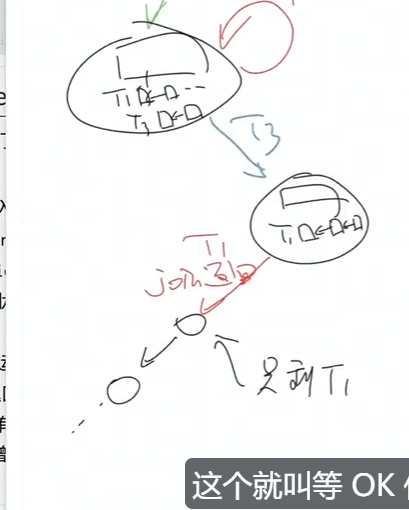 T1 □←□ ...
T3 □←□
T3
T1 □←□←□
T1
join
只剩 T1
这个就叫等 OK